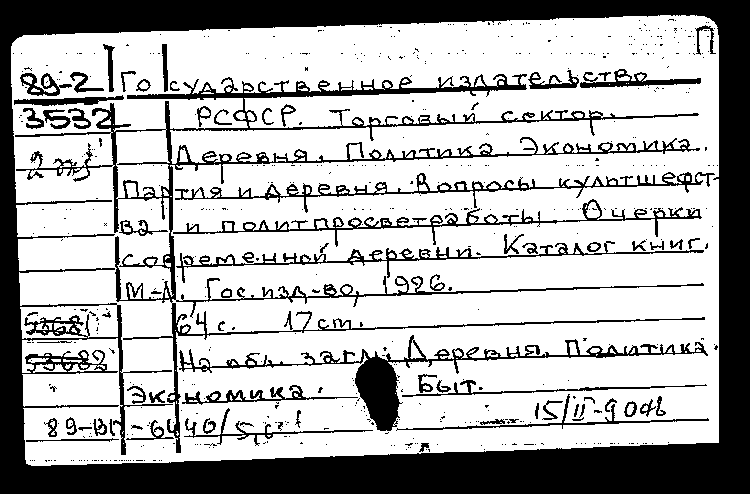 П
89-2 Государственное издательство
3532 РСФСР. Торговый сектор.
2 экз Деревня. Политика. Экономика.
Партия и деревня. Вопросы культшефст-
ва и политпросветработы. Очерки
современной деревни. Каталог книг.
М.-Л., Гос. изд-во, 1926.
53681 64 с. 17 cm.
53682 На обл. загл.: Деревня. Политика.
Экономика. Быт.
15/II-90
89-ВП-6440/